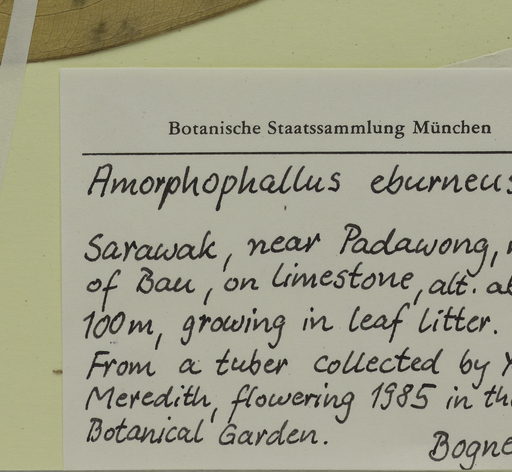 Botanische Staatssammlung München
Amorphophallus eburneus
Sarawak, near Padawong,
of Bau, on limestone, alt.
100m, growing in leaf litter.
From a tuber collected by
Meredith, flowering 1985 in
Botanical Garden. Bogne